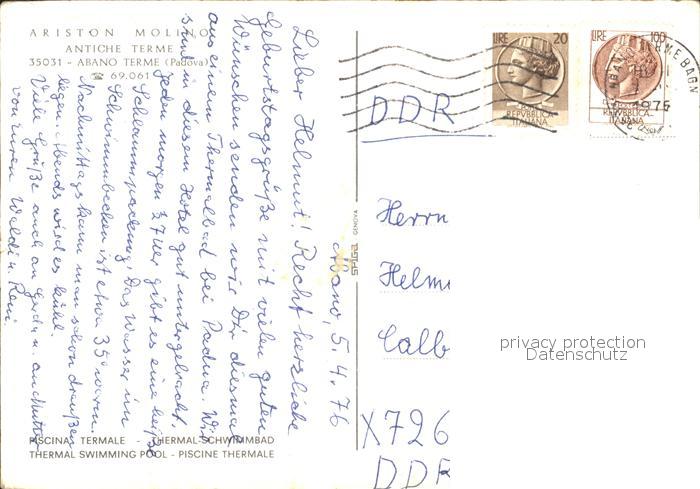 ARISTON MOLINO
ANTICHE TERME
35031 - ABANO TERME (Padova)
☎ 69.061
Abano, 5.4.76
Lieber Helmut! Recht herzliche
Geburtstagsgrüße mit vielen guten
Wünschen senden wir Dir diesmal
aus einem Thermalbad bei Padua. Wir
sind in diesem Hotel gut untergebracht.
Jeden morgen ½ 7 Uhr gibt es eine heiße
Schlammpackung. Das Wasser im
Schwimmbecken ist etwa 35° warm.
Nachmittags kann man schon draußen
liegen. Abends wird es kühl.
Viele Grüße auch an Gerda u. an Mutter
von Euren Waldi u. Reni
PISCINA TERMALE - THERMAL-SCHWIMMBAD
THERMAL SWIMMING POOL - PISCINE THERMALE
GENOVA
LIRE 20
REPVBBLICA
ITALIANA
LIRE 100
REPVBBLICA
ITALIANA
1976
DDR
Herrn
Helm
Calb
X726
DDR
privacy protection
Datenschutz